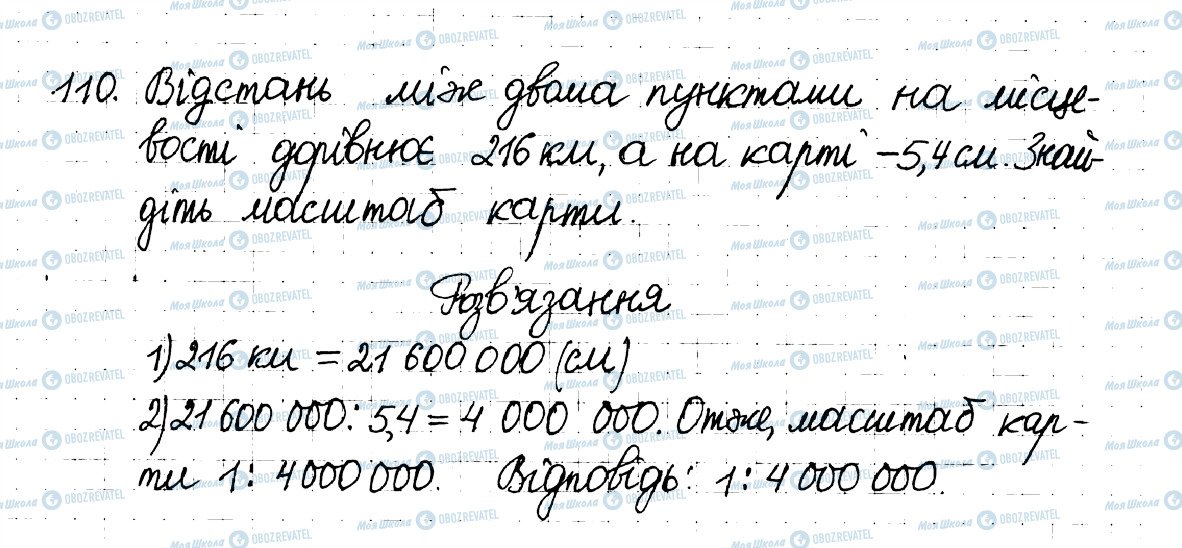 110. Відстань між двома пунктами на місце-
вості дорівнює 216 км, а на карті – 5,4 см. Знай-
діть масштаб карти.
Розв'язання
1) 216 км = 21 600 000 (см)
2) 21 600 000 : 5,4 = 4 000 000. Отже, масштаб кар-
ти 1 : 4 000 000. Відповідь: 1 : 4 000 000.